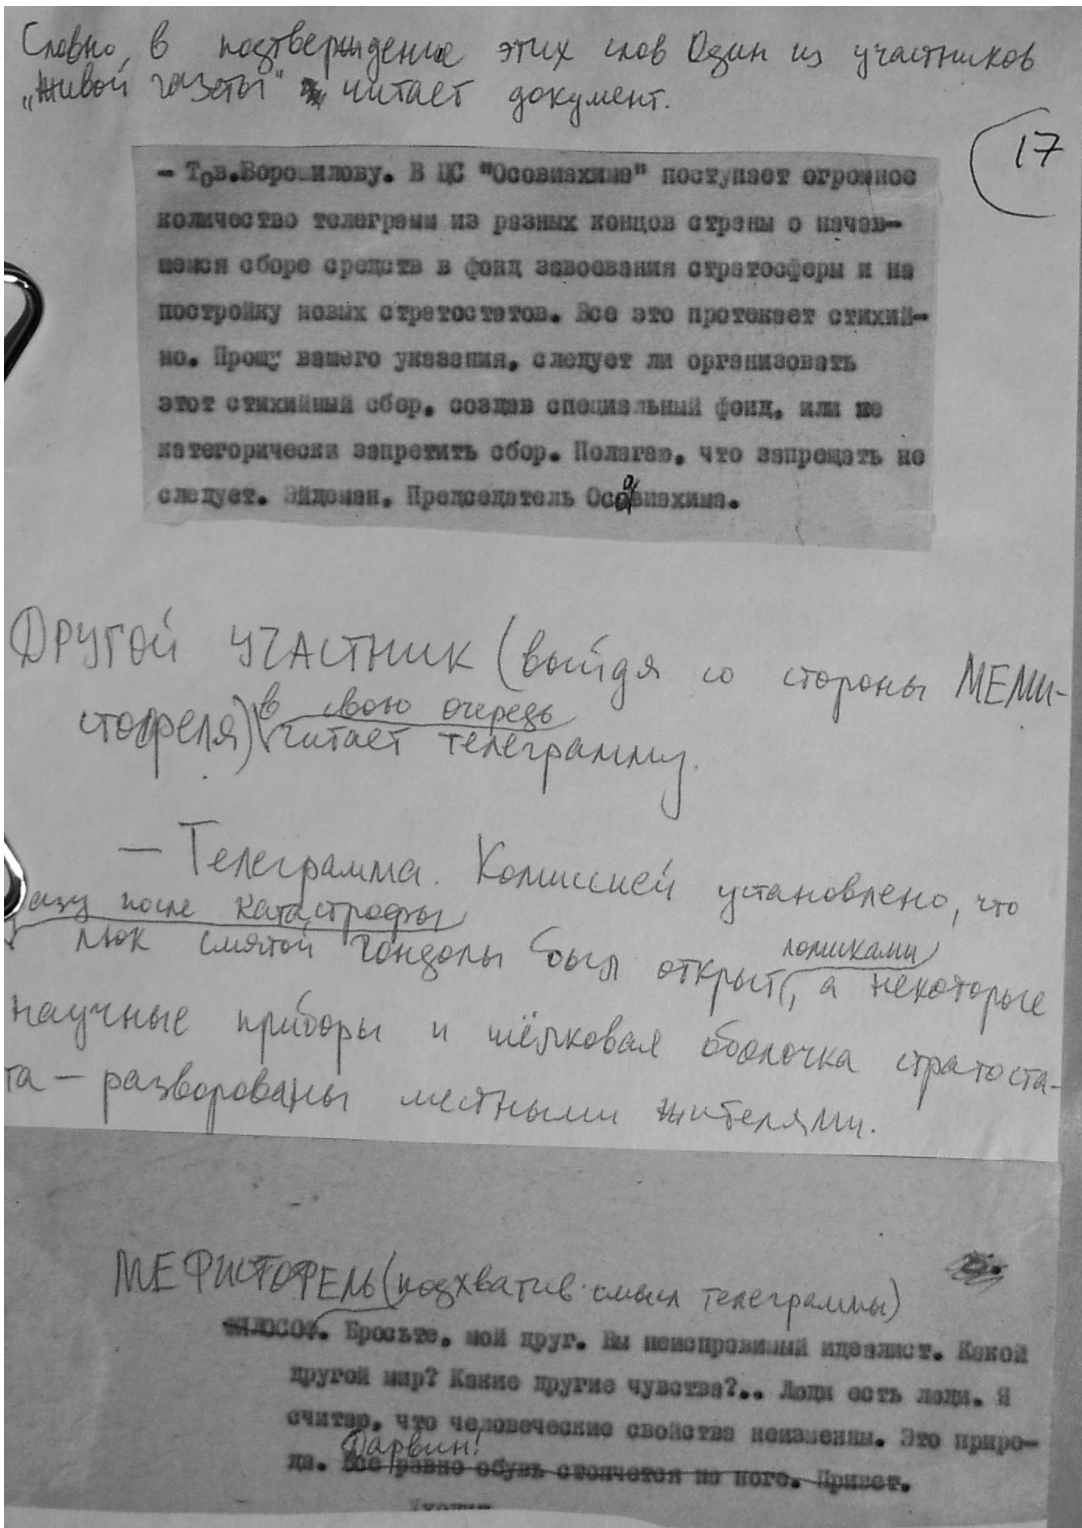 Словно в подтверждение этих слов Один из участников
„Живой газеты" читает документ.
17
- Тов.Ворошилову. В ЦС "Осовиахима" поступает огромное
количество телеграмм из разных концов страны о начав-
шемся сборе средств в фонд завоевания стратосферы и на
постройку новых стратостатов. Все это протекает стихий-
но. Прошу вашего указания, следует ли организовать
этот стихийный сбор, создав специальный фонд, или же
категорически запретить сбор. Полагаю, что запрещать не
следует. Эйдеман. Председатель Осовиахима.
ДРУГОЙ УЧАСТНИК (выйдя со стороны МЕМИ-
стофеля) в свою очередь
читает телеграмму.
— Телеграмма. Комиссией установлено, что
сразу после катастрофы
люк смятой гондолы был открыт ломиками, а некоторые
научные приборы и шёлковая оболочка стратоста-
та — разворованы местными жителями.
МЕФИСТОФЕЛЬ (подхватив смысл телеграммы)
ФИЛОСОФ. Бросьте, мой друг. Вы неисправимый идеалист. Какой
другой мир? Какие другие чувства?.. Люди есть люди. Я
считаю, что человеческие свойства неизменны. Это приро-
да. Дарвин! Все равно обувь стопчется по ноге. Привет.